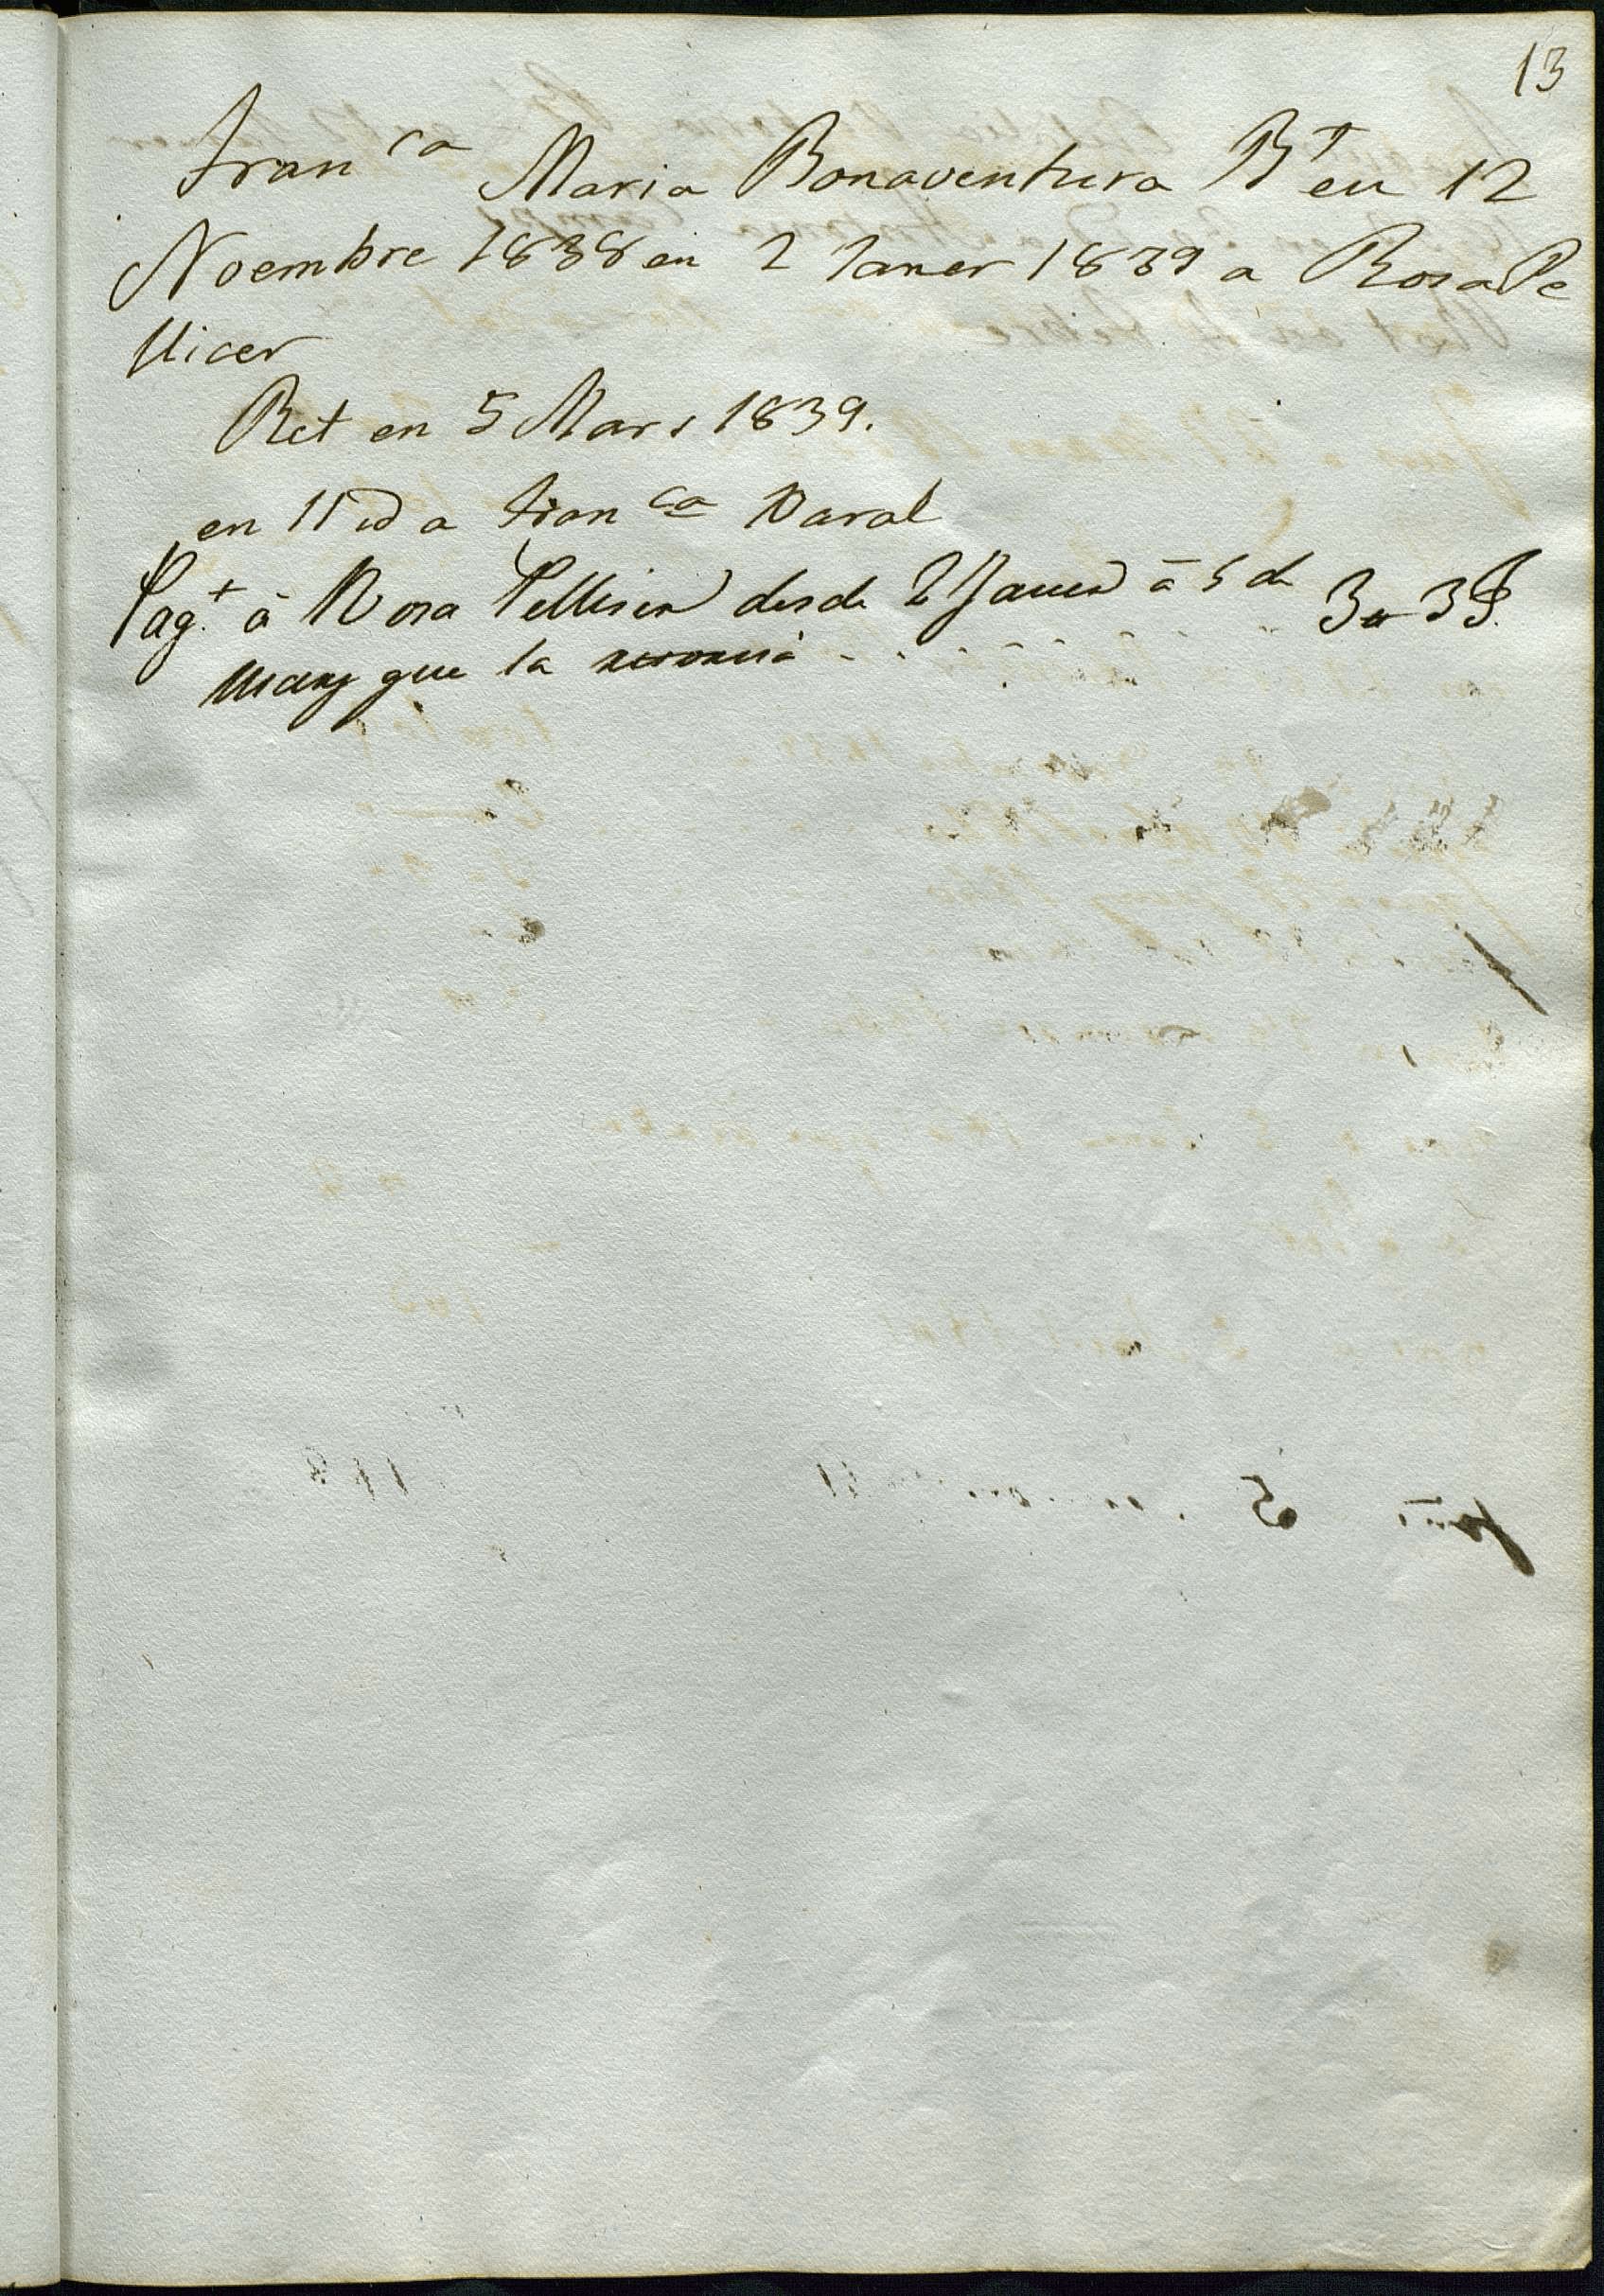 13
Fran^ca Maria Bonaventura B^t en 12
Noembre 1838 en 2 Janer 1839 a Rosa Pe
llicer
Ret en 5 Mars 1839.
en 11 id a Fran^ca Daral
Pag^t à Rosa Pelliser desde 2 Janer à 5 de 3 # 3 $.
Mars que la retorná - . . . . . .